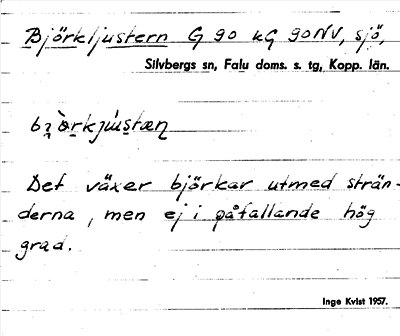 Björkljustern G 90 kG 90NV, sjö,
Silvbergs sn, Falu doms. s. tg, Kopp. län.
Det växer björkar utmed strän-
derna, men ej i påfallande hög
grad.
Inge Kvist 1957.